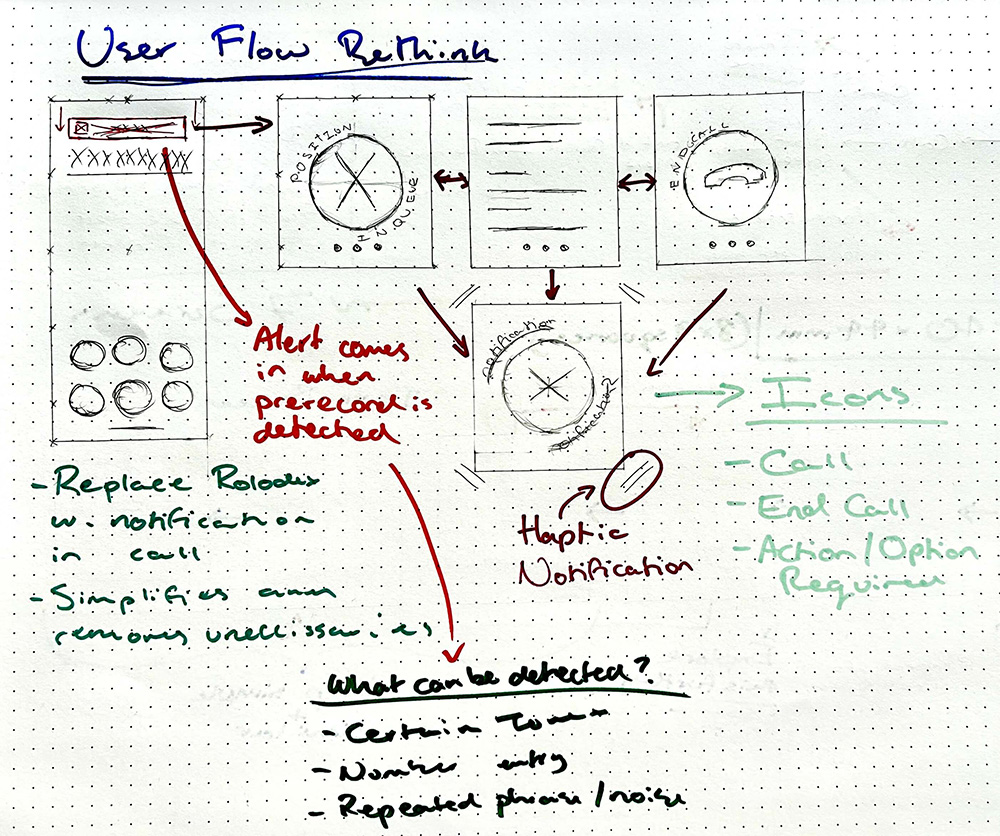 User Flow Rethink
POSITION
IN QUEUE
END CALL
notification
notification
Alert comes
in when
prerecord is
detected
Icons
- Call
- End Call
- Action/Option
Required
- Replace Rolodex
w. notification
in call
- Simplifies
removes
Haptic
Notification
What can be detected?
- Certain
- Number entry
- Repeated phrase/noise